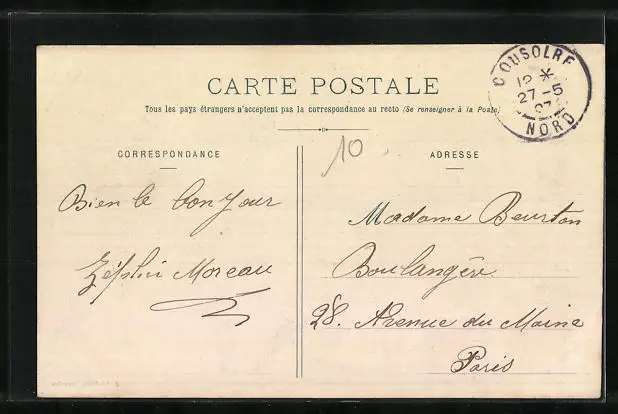 CARTE POSTALE
Tous les pays étrangers n'acceptent pas la correspondance au recto (Se renseigner à la Poste)
COUSOLRE
12 *
27 -5
07
NORD
10
CORRESPONDANCE
Bien le bonjour
Zéphir Moreau
ADRESSE
Madame Beurton
Boulangère
28. Avenue du Maine
Paris